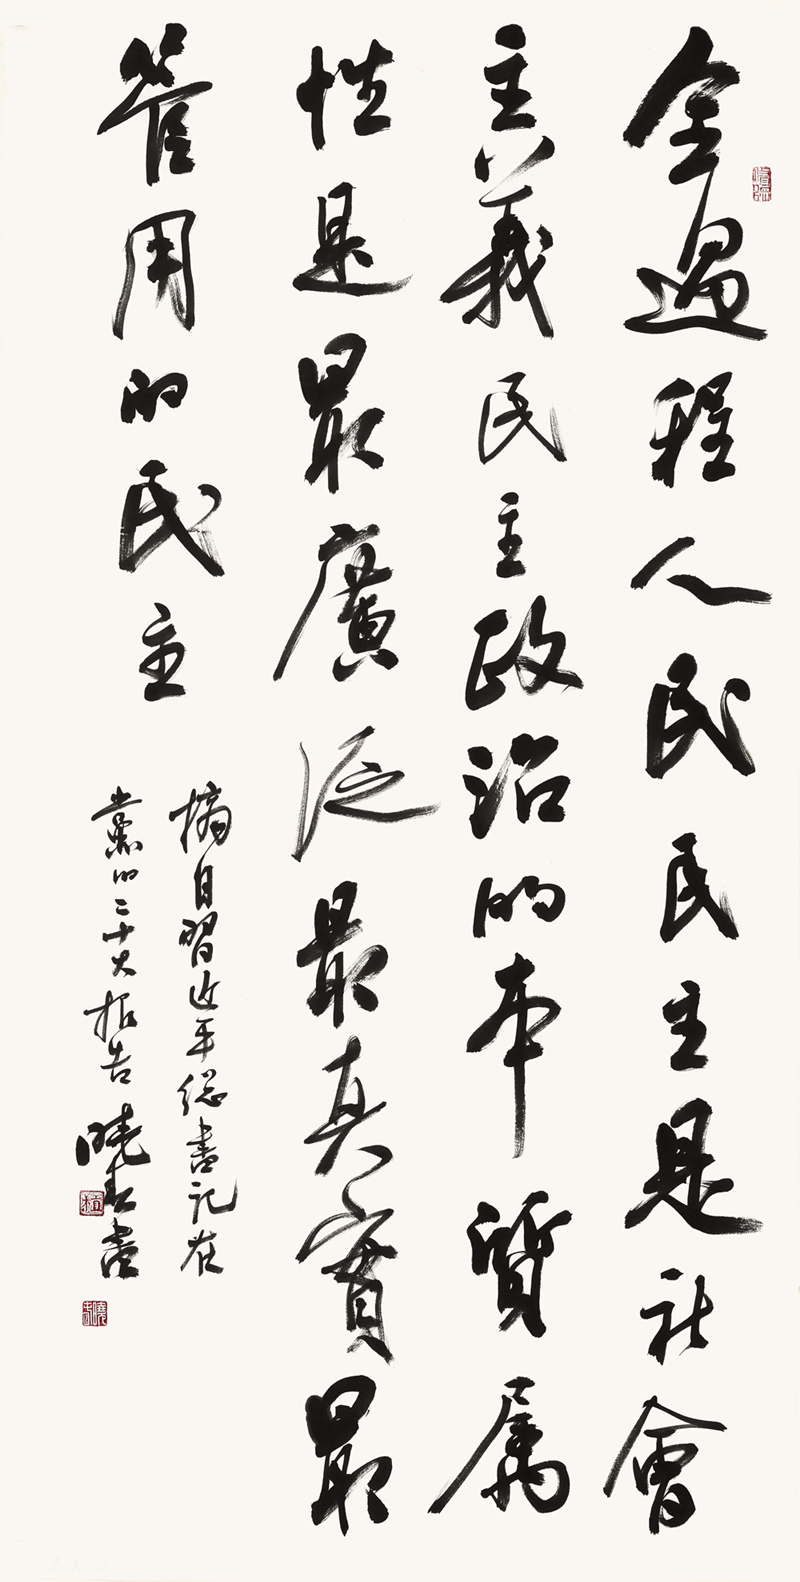 全過程人民民主是社會
主義民主政治的本質属
性是最廣泛最真實最
管用的民主
摘自習近平總書記在
黨的二十大报告 曉春書